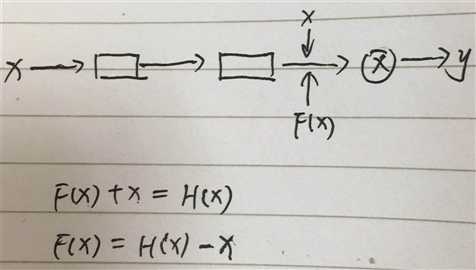 x
x x y
F(x)
F(x) + x = H(x)
F(x) = H(x) - x